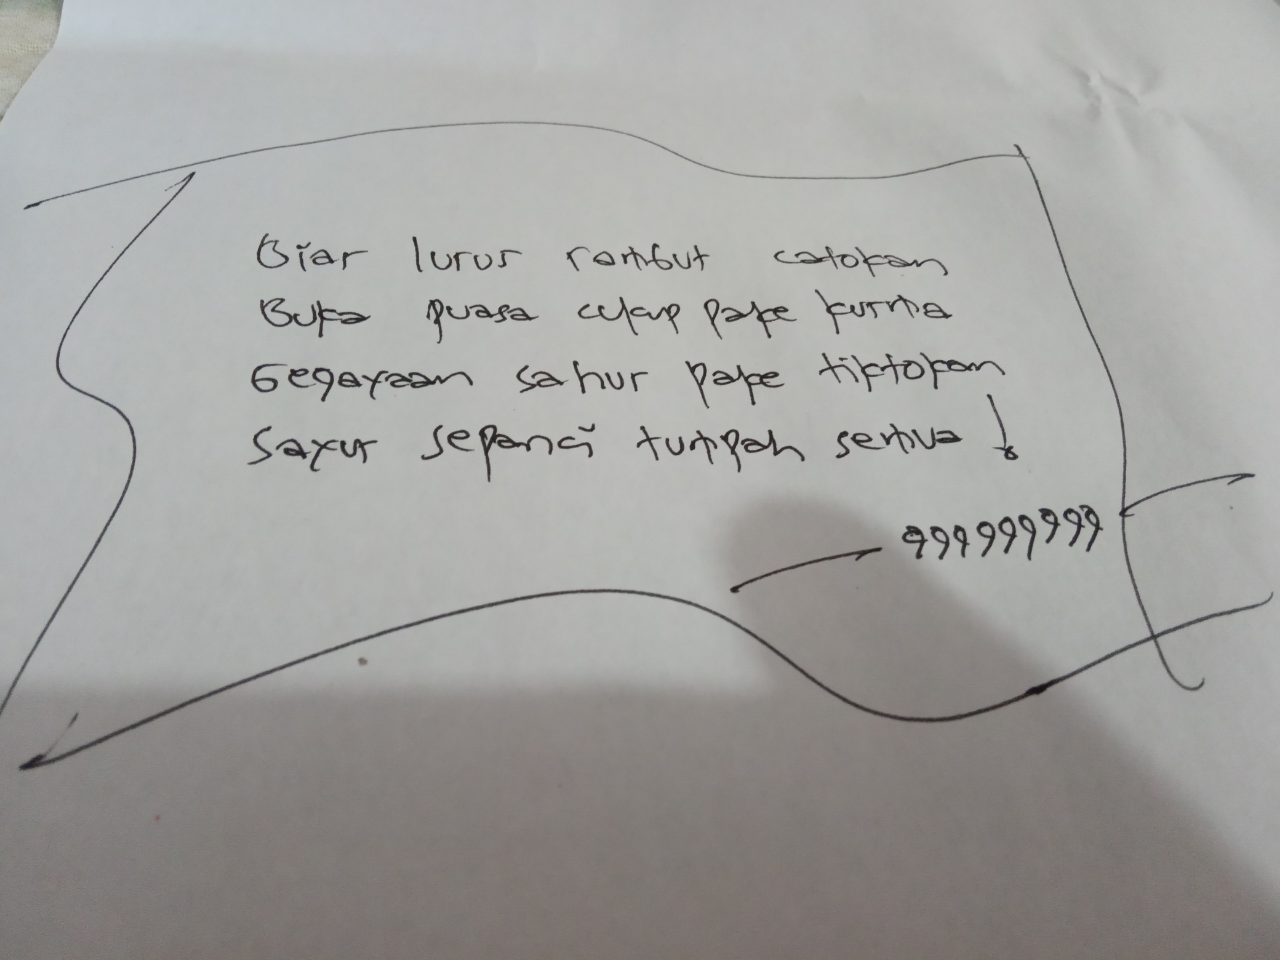 Biar lurus rambut catokan
Buka puasa cukup pake kurma
Gegayaan sahur pake tiktokan
Sayur sepanci tumpah semua !
999999999